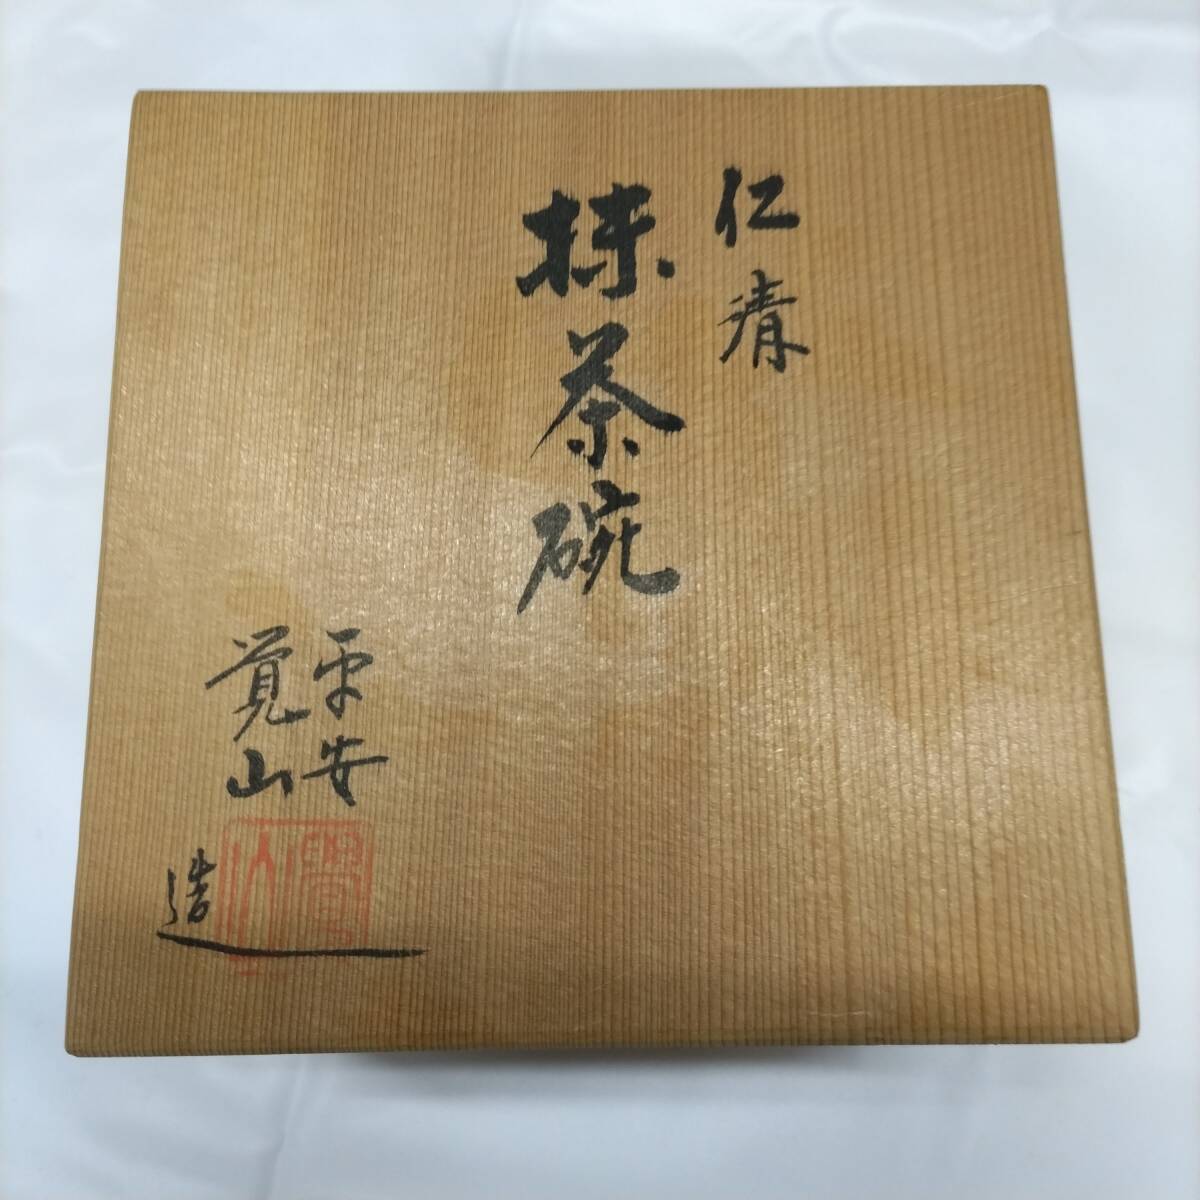 仁清
抹茶碗
平安
覚山
造